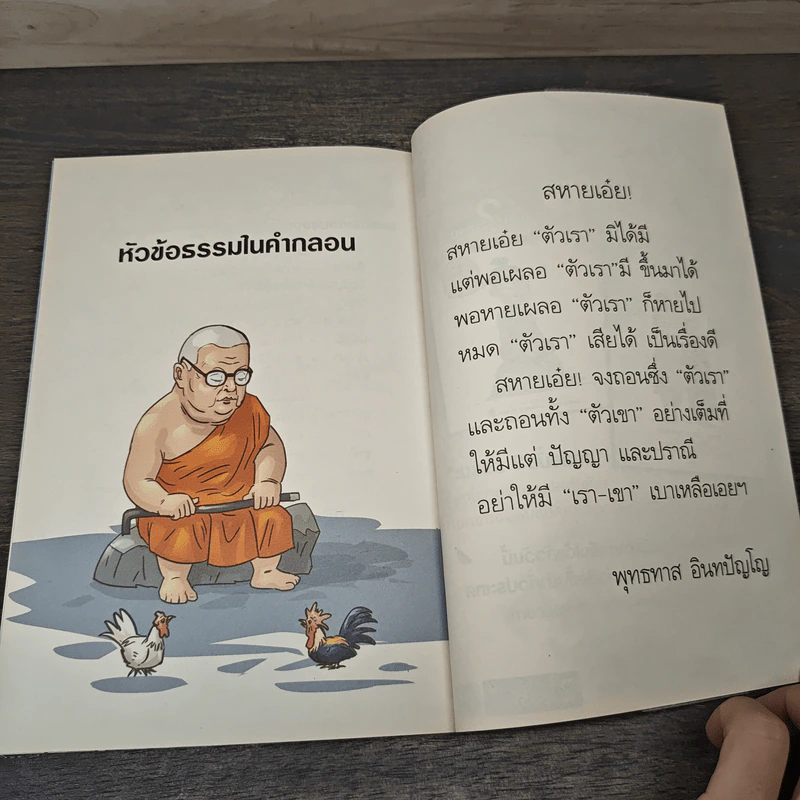 หัวข้อธรรมในคำกลอน
สหายเอ๋ย!
สหายเอ๋ย “ตัวเรา” มิได้มี
แต่พอเผลอ “ตัวเรา”มี ขึ้นมาได้
พอหายเผลอ “ตัวเรา” ก็หายไป
หมด “ตัวเรา” เสียได้ เป็นเรื่องดี
สหายเอ๋ย! จงถอนซึ่ง “ตัวเรา”
และถอนทั้ง “ตัวเขา” อย่างเต็มที่
ให้มีแต่ ปัญญา และปราณี
อย่าให้มี “เรา-เขา” เบาเหลือเอยฯ
พุทธทาส อินทปัญโญ